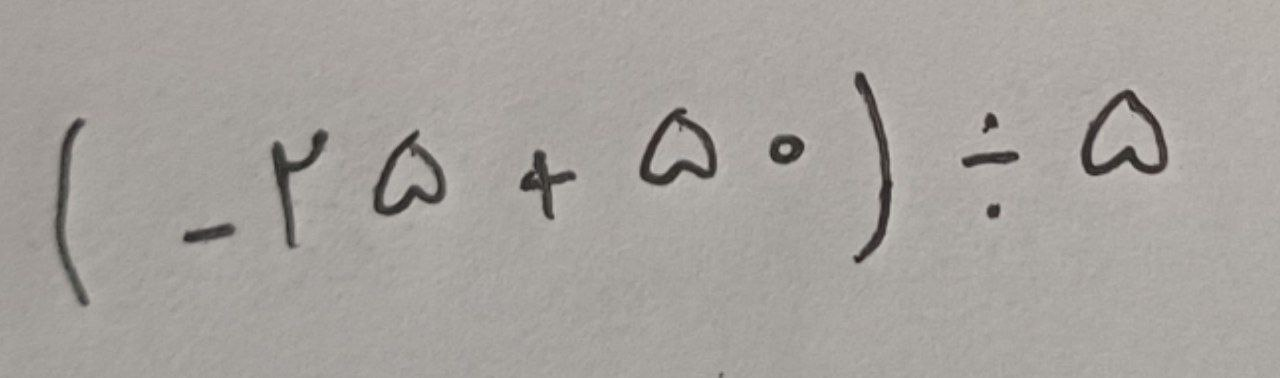 (-۲۵ + ۵۰) ÷ ۵